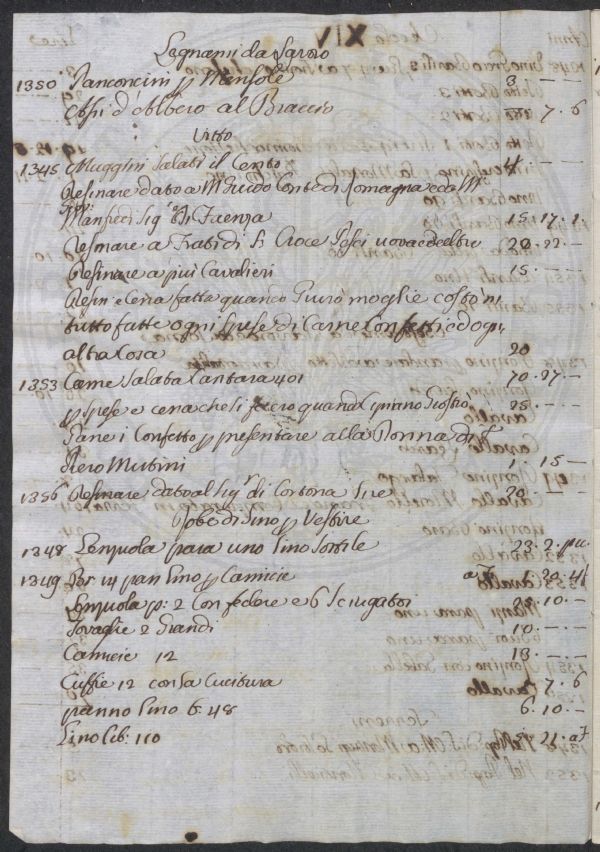 Legnami da Lavoro
1350 Panconcini p Mensole 3 . — . —
Assi d'Albero al Braccio . 7 . 6
Vitto
1345 Muggini Salati il Cento 4 . —
Desinare dato a M Guido Conte di Romagna e da Mr
Manfredi Sigr di Faenza 15 . 17 . 1 .
Desinare a Frati di S. Croce Pesci uova ed erbe 20 . 22 . —
Desinare a più Cavalieri 15 . — . —
Desin e Cena fatta quando Giurò moglie costò in
tutto fatte ogni Spese di Carne Confetti ed ogni
altra Cosa 20
1353 Carne Salata Cantara 401 70 . 27 . —
p spese e cena che si fecero quand Cipriano Giostrò 25 . — . —
Pane i Confetto p presentare alla Donna di
Piero Mutini 1 . 15 —
1356 Desinare dato al Sigr di Cortona Lire 20 . — . —
Robe di Lino p Vestire
1348 Lenzuola para uno Lino Sottile 23 . 2 . pu.
1349 Br 14 pan Lino p Camicie 1 . 20 . 4
Lenzuola p: 2 Con federe e 6 Sciugatoi 25 . 10 . —
Tovaglie 2 Grandi 10 . — . —
Camicie 12 13 . — . —
Cuffie 12 con la Cucitura . 7 . 6
panno Lino b. 48 6 . 10 . —
Lino lib. 110 21 .